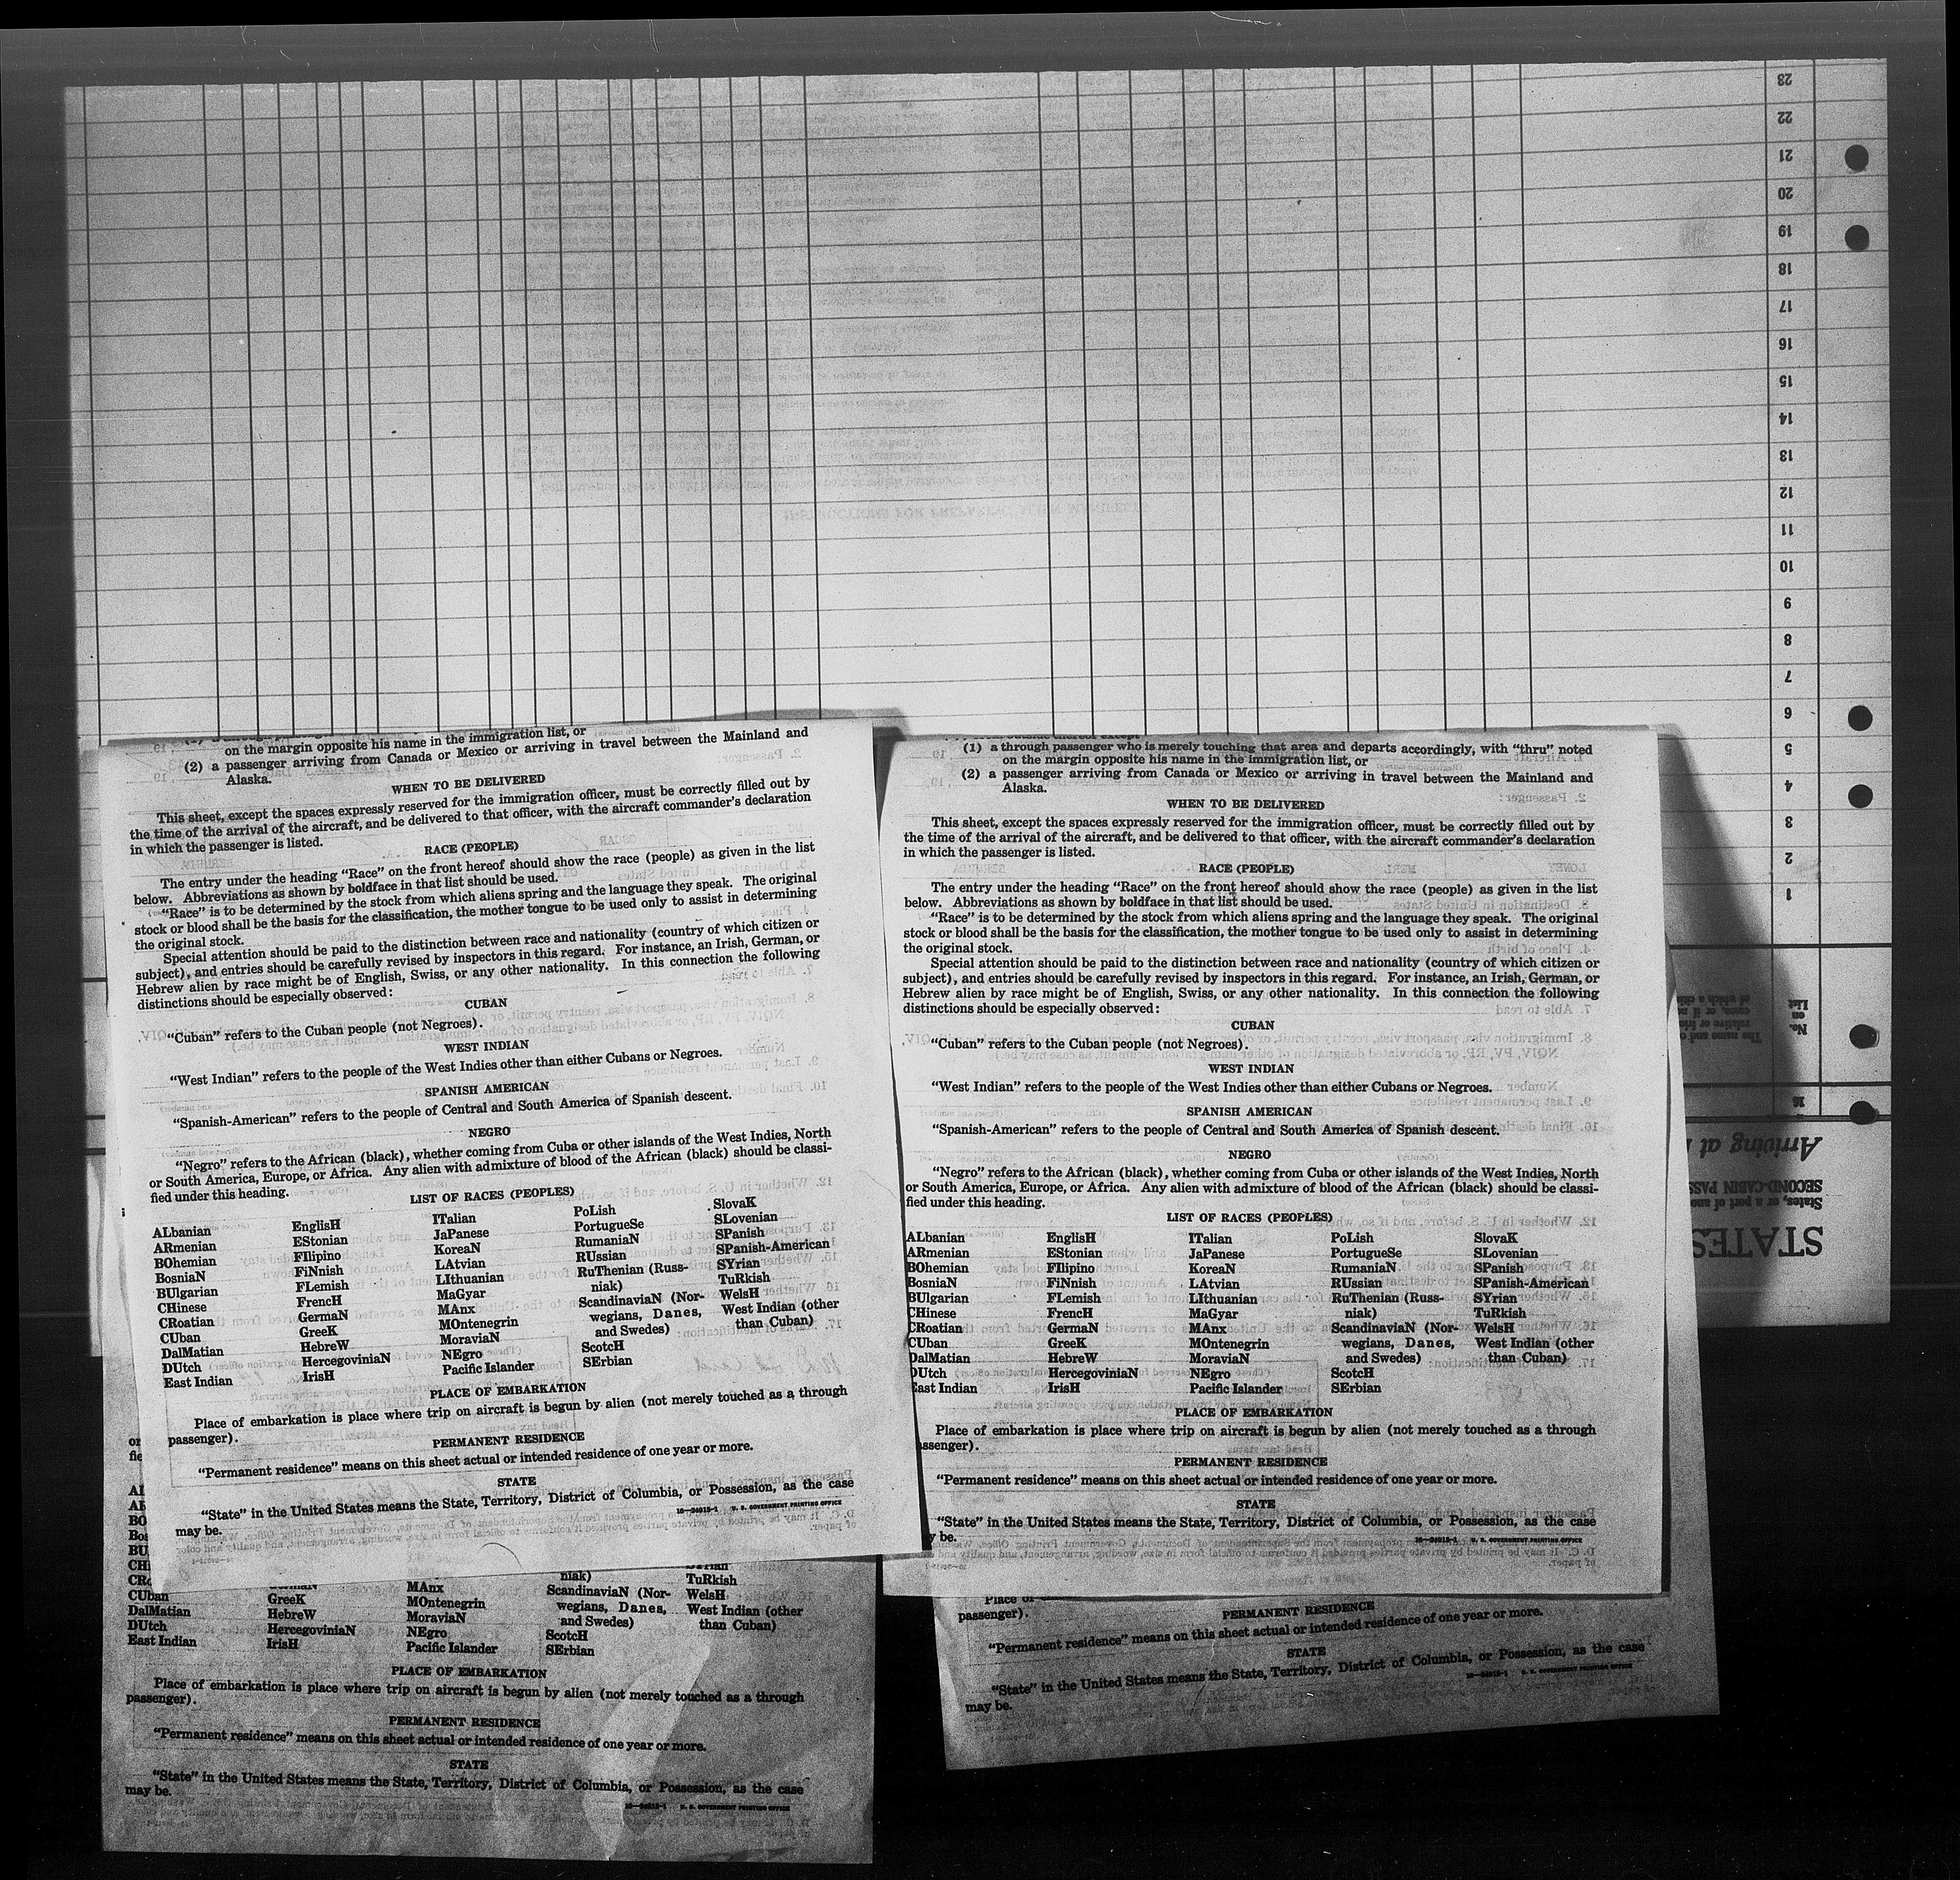 23
22
21
20
19
18
17
16
15
14
13
12
11
10
9
8
7
6
5
4
3
2
1
No.
on
List
16
Arriving at
SECOND-CABIN PASS
States, or a part of ano
STATES
on the margin opposite his name in the immigration list, or
(2) a passenger arriving from Canada or Mexico or arriving in travel between the Mainland and
Alaska.
WHEN TO BE DELIVERED
This sheet, except the spaces expressly reserved for the immigration officer, must be correctly filled out by
the time of the arrival of the aircraft, and be delivered to that officer, with the aircraft commander's declaration
in which the passenger is listed.
RACE (PEOPLE)
The entry under the heading "Race" on the front hereof should show the race (people) as given in the list
below. Abbreviations as shown by boldface in that list should be used.
"Race" is to be determined by the stock from which aliens spring and the language they speak. The original
stock or blood shall be the basis for the classification, the mother tongue to be used only to assist in determining
the original stock.
Special attention should be paid to the distinction between race and nationality (country of which citizen or
subject), and entries should be carefully revised by inspectors in this regard. For instance, an Irish, German, or
Hebrew alien by race might be of English, Swiss, or any other nationality. In this connection the following
distinctions should be especially observed:
CUBAN
"Cuban" refers to the Cuban people (not Negroes).
WEST INDIAN
"West Indian" refers to the people of the West Indies other than either Cubans or Negroes.
SPANISH AMERICAN
"Spanish-American" refers to the people of Central and South America of Spanish descent.
NEGRO
"Negro" refers to the African (black), whether coming from Cuba or other islands of the West Indies, North
or South America, Europe, or Africa. Any alien with admixture of blood of the African (black) should be classi-
fied under this heading.
LIST OF RACES (PEOPLES)
ALbanian
ARmenian
BOhemian
BosniaN
BUlgarian
CHinese
CRoatian
CUban
DalMatian
DUtch
East Indian
EnglisH
EStonian
FIlipino
FiNnish
FLemish
FrencH
GermaN
GreeK
HebreW
HercegoviniaN
IrisH
ITalian
JaPanese
KoreaN
LAtvian
LIthuanian
MaGyar
MAnx
MOntenegrin
MoraviaN
NEgro
Pacific Islander
PoLish
PortugueSe
RumaniaN
RUssian
RuThenian (Russ-
niak)
ScandinaviaN (Nor-
wegians, Danes,
and Swedes)
ScotcH
SErbian
SlovaK
SLovenian
SPanish
SPanish-American
SYrian
TuRkish
WelsH
West Indian (other
than Cuban)
PLACE OF EMBARKATION
Place of embarkation is place where trip on aircraft is begun by alien (not merely touched as a through
passenger).
PERMANENT RESIDENCE
"Permanent residence" means on this sheet actual or intended residence of one year or more.
STATE
"State" in the United States means the State, Territory, District of Columbia, or Possession, as the case
may be.
16—24818-1 U. S. GOVERNMENT PRINTING OFFICE
(1) a through passenger who is merely touching that area and departs accordingly, with "thru" noted
on the margin opposite his name in the immigration list, or
(2) a passenger arriving from Canada or Mexico or arriving in travel between the Mainland and
Alaska.
WHEN TO BE DELIVERED
This sheet, except the spaces expressly reserved for the immigration officer, must be correctly filled out by
the time of the arrival of the aircraft, and be delivered to that officer, with the aircraft commander's declaration
in which the passenger is listed.
RACE (PEOPLE)
The entry under the heading "Race" on the front hereof should show the race (people) as given in the list
below. Abbreviations as shown by boldface in that list should be used.
"Race" is to be determined by the stock from which aliens spring and the language they speak. The original
stock or blood shall be the basis for the classification, the mother tongue to be used only to assist in determining
the original stock.
Special attention should be paid to the distinction between race and nationality (country of which citizen or
subject), and entries should be carefully revised by inspectors in this regard. For instance, an Irish, German, or
Hebrew alien by race might be of English, Swiss, or any other nationality. In this connection the following
distinctions should be especially observed:
CUBAN
"Cuban" refers to the Cuban people (not Negroes).
WEST INDIAN
"West Indian" refers to the people of the West Indies other than either Cubans or Negroes.
SPANISH AMERICAN
"Spanish-American" refers to the people of Central and South America of Spanish descent.
NEGRO
"Negro" refers to the African (black), whether coming from Cuba or other islands of the West Indies, North
or South America, Europe, or Africa. Any alien with admixture of blood of the African (black) should be classi-
fied under this heading.
LIST OF RACES (PEOPLES)
ALbanian
ARmenian
BOhemian
BosniaN
BUlgarian
CHinese
CRoatian
CUban
DalMatian
DUtch
East Indian
EnglisH
EStonian
FIlipino
FiNnish
FLemish
FrencH
GermaN
GreeK
HebreW
HercegoviniaN
IrisH
ITalian
JaPanese
KoreaN
LAtvian
LIthuanian
MaGyar
MAnx
MOntenegrin
MoraviaN
NEgro
Pacific Islander
PoLish
PortugueSe
RumaniaN
RUssian
RuThenian (Russ-
niak)
ScandinaviaN (Nor-
wegians, Danes,
and Swedes)
ScotcH
SErbian
SlovaK
SLovenian
SPanish
SPanish-American
SYrian
TuRkish
WelsH
West Indian (other
than Cuban)
PLACE OF EMBARKATION
Place of embarkation is place where trip on aircraft is begun by alien (not merely touched as a through
ssenger).
PERMANENT RESIDENCE
"Permanent residence" means on this sheet actual or intended residence of one year or more.
STATE
"State" in the United States means the State, Territory, District of Columbia, or Possession, as the case
y be.
16—24818-1 U. S. GOVERNMENT PRINTING OFFICE
or
fie
AL
AR
BO
Bos
BU
CH
CRo
CUban
DalMatian
DUtch
East Indian
GreeK
HebreW
HercegoviniaN
IrisH
MAnx
MOntenegrin
MoraviaN
NEgro
Pacific Islander
niak)
ScandinaviaN (Nor-
wegians, Danes,
and Swedes)
ScotcH
SErbian
TuRkish
WelsH
West Indian (other
than Cuban)
PLACE OF EMBARKATION
Place of embarkation is place where trip on aircraft is begun by alien (not merely touched as a through
passenger).
PERMANENT RESIDENCE
"Permanent residence" means on this sheet actual or intended residence of one year or more.
STATE
"State" in the United States means the State, Territory, District of Columbia, or Possession, as the case
may be.
16—24818-1 U. S. GOVERNMENT PRINTING OFFICE
Place of
passenger).
PERMANENT RESIDENCE
"Permanent residence" means on this sheet actual or intended residence of one year or more.
STATE
"State" in the United States means the State, Territory, District of Columbia, or Possession, as the case
may be.
16—24818-1 U. S. GOVERNMENT PRINTING OFFICE